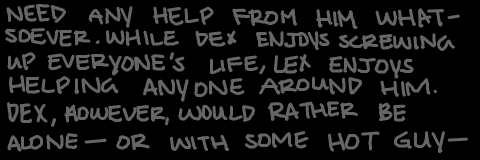 NEED ANY HELP FROM HIM WHAT-
SOEVER. WHILE DEX ENJOYS SCREWING
UP EVERYONE'S LIFE, LEX ENJOYS
HELPING ANYONE AROUND HIM.
DEX, HOWEVER, WOULD RATHER BE
ALONE— OR WITH SOME HOT GUY—